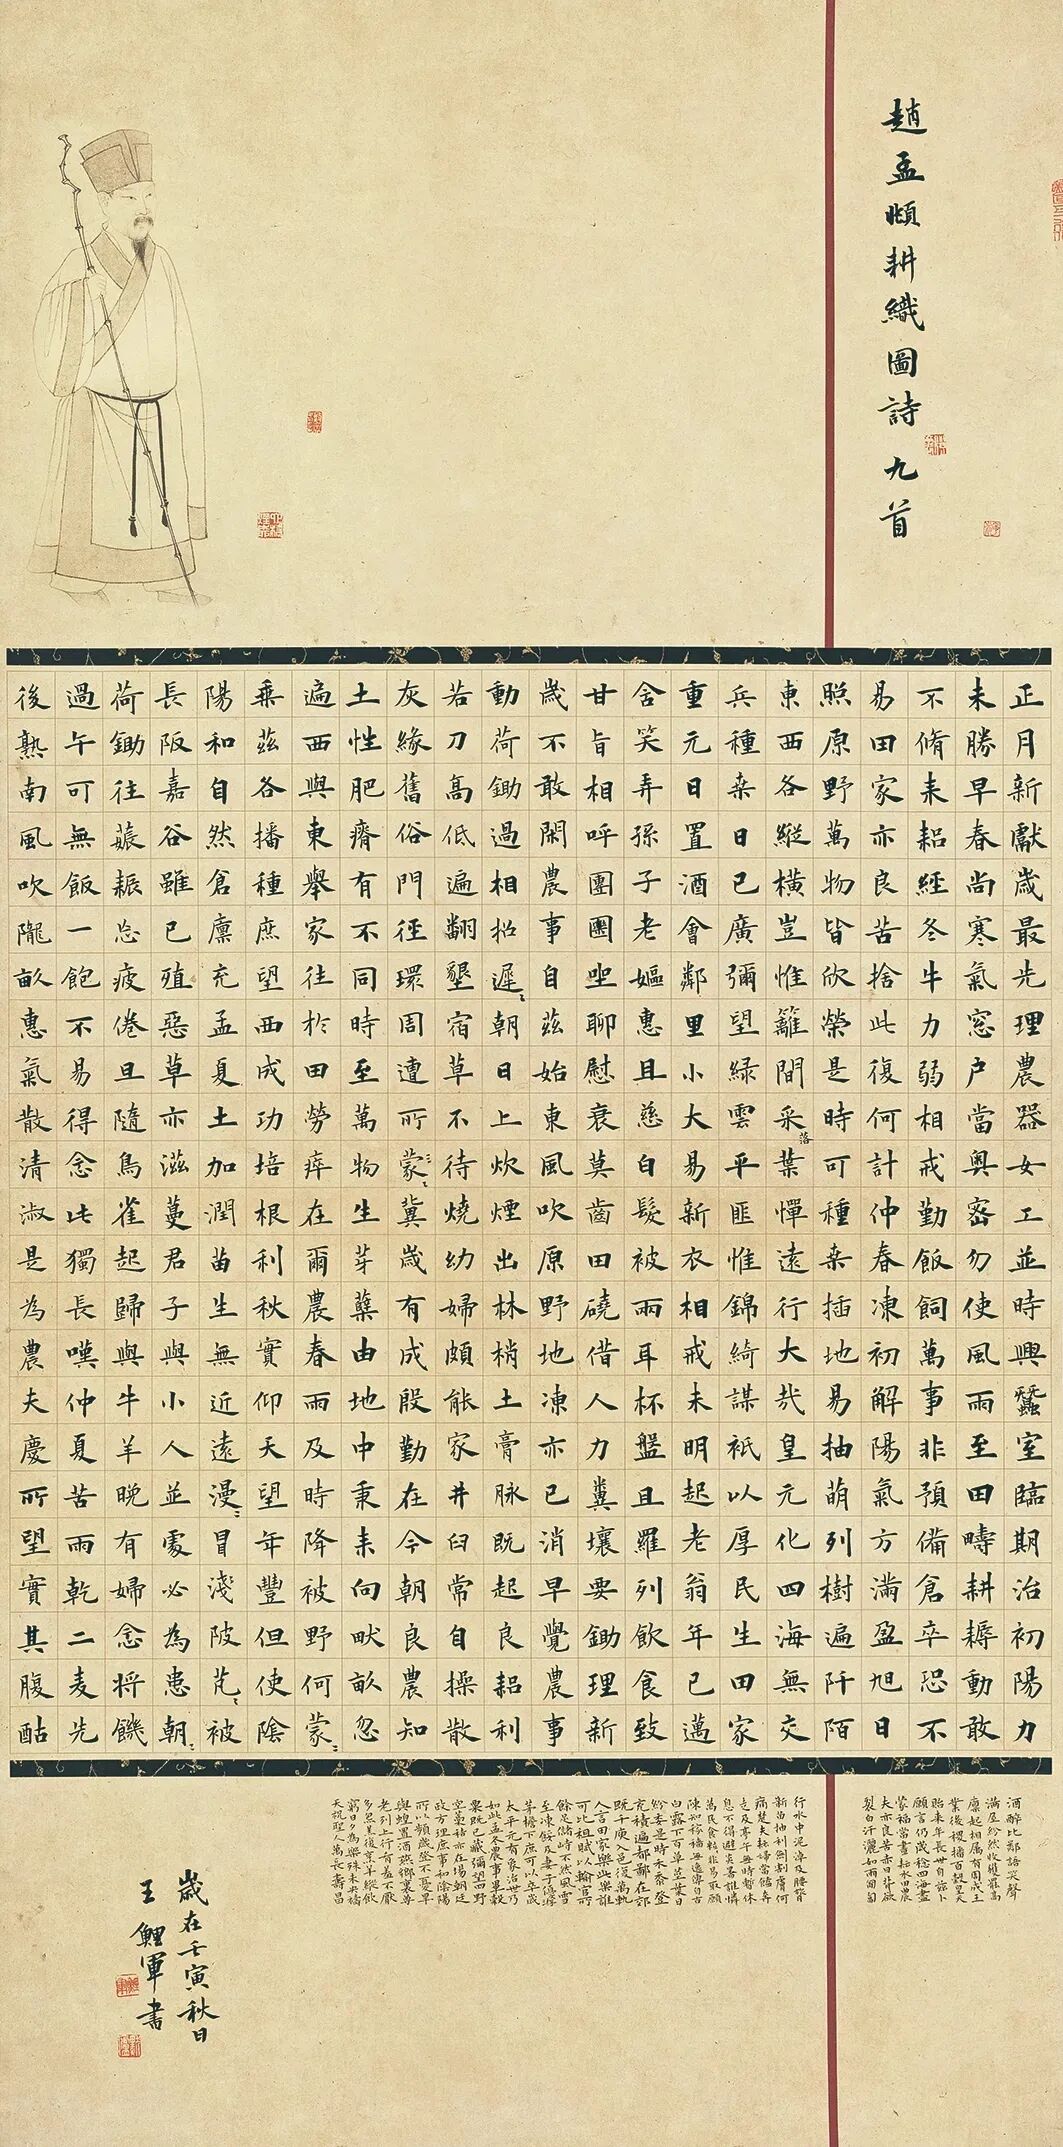 趙孟頫耕織圖詩九首
正月新獻歲最先理農器女工並時興蠶室臨期治初陽力
未勝早春尚寒氣窓戶當奧密勿使風雨至田疇耕耨動敢
不脩耒耜經冬牛力弱相戒勤飯飼萬事非預備倉卒恐不
易田家亦良苦捨此復何計仲春凍初解陽氣方滿盈旭日
照原野萬物皆欣榮是時可種桒插地易抽萌列樹遍阡陌
東西各縱橫豈惟籬間采落葉憚遠行大哉皇元化四海無交
兵種桒日已廣彌望綠雲平匪惟錦綺謀衹以厚民生田家
重元日置酒會鄰里小大易新衣相戒未明起老翁年已邁
含笑弄孫子老嫗惠且慈白髮被兩耳杯盤且羅列飲食致
甘旨相呼團圞坐聊慰衰莫齒田磽借人力糞壤要鋤理新
歲不敢閑農事自茲始東風吹原野地凍亦已消早覺農事
動荷鋤過相招遲〻朝日上炊煙出林梢土膏脉既起良耜利
若刀高低遍翻墾宿草不待燒幼婦頗能家井臼常自操散
灰緣舊俗門徑環周遭所蒙〻冀歲有成殷勤在今朝良農知
土性肥瘠有不同時至萬物生芽糵由地中秉耒向畎畝忽
遍西與東舉家往於田勞瘁在爾農春雨及時降被野何蒙〻
乗茲各播種庶望西成功培根利秋實仰天望年豐但使陰
陽和自然倉廩充孟夏土加潤苗生無近遠漫〻冒淺陂芃〻被
長阪嘉谷雖已殖惡草亦滋蔓君子與小人並處必為患朝〻
荷鋤往薅耨忘疲倦旦隨鳥雀起歸與牛羊晚有婦念將饑
過午可無飯一飽不易得念此獨長嘆仲夏苦雨乾二麦先
後熟南風吹隴畝惠氣散清淑是為農夫慶所望實其腹酤
酒醉比鄰語笑聲
滿屋紛然收獲罷高
廩起相屬有周成王
業後稷播百穀皇天
貽來年長世自茲卜
願言仍歲稔四海盡
蒙福當晝耘水田農
夫亦良苦赤日背欲
裂白汗灑如雨匍匐
行水中泥淖及腰膂
新苗抽利劍割膚何
痛楚夫耘婦當饁奔
走及亭午無時暫休
息不得避炎暑誰憐
萬民食粒非易取願
陳知稼穡無逸傳自古
白露下百草莖葉日
紛委是時禾黍登
充積遍都鄙在郊
既千庾入邑復萬軌
人言田家樂此樂誰
可比租賦以輸官所
餘足儲峙不然風雪
至凍餒及妻子優游
茅簷下庶可以卒歲
太平元有象治世乃
如此孟冬農事畢穀
粟既已藏彌望四野
空藁秸亦在場朝廷
政方理庶事和陰陽
所以頻歲登不憂旱
與蝗置酒燕鄉里尊
老列上行肴羞不厭
多炰羔復烹羊縱飲
窮日夕為樂殊未央禱
天祝聖人萬長壽昌
歲在壬寅秋日
王鯉軍書